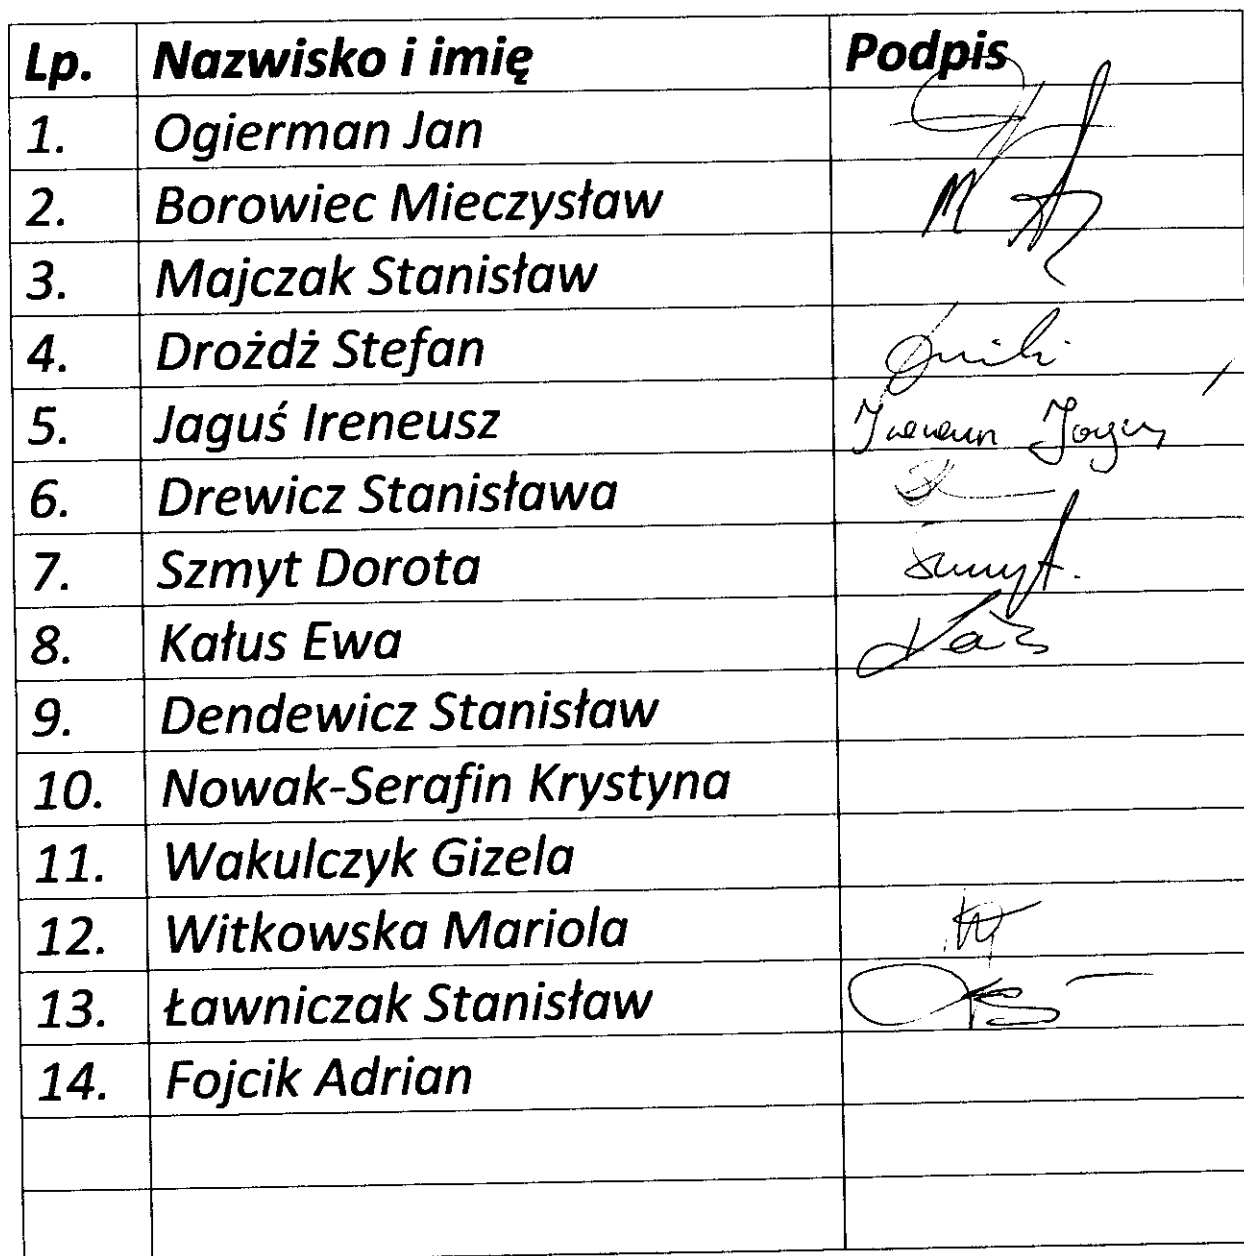 Lp. Nazwisko i imię Podpis
1. Ogierman Jan
2. Borowiec Mieczysław
3. Majczak Stanisław
4. Drożdż Stefan
5. Jaguś Ireneusz
6. Drewicz Stanisława
7. Szmyt Dorota
8. Kałus Ewa
9. Dendewicz Stanisław
10. Nowak-Serafin Krystyna
11. Wakulczyk Gizela
12. Witkowska Mariola
13. Ławniczak Stanisław
14. Fojcik Adrian